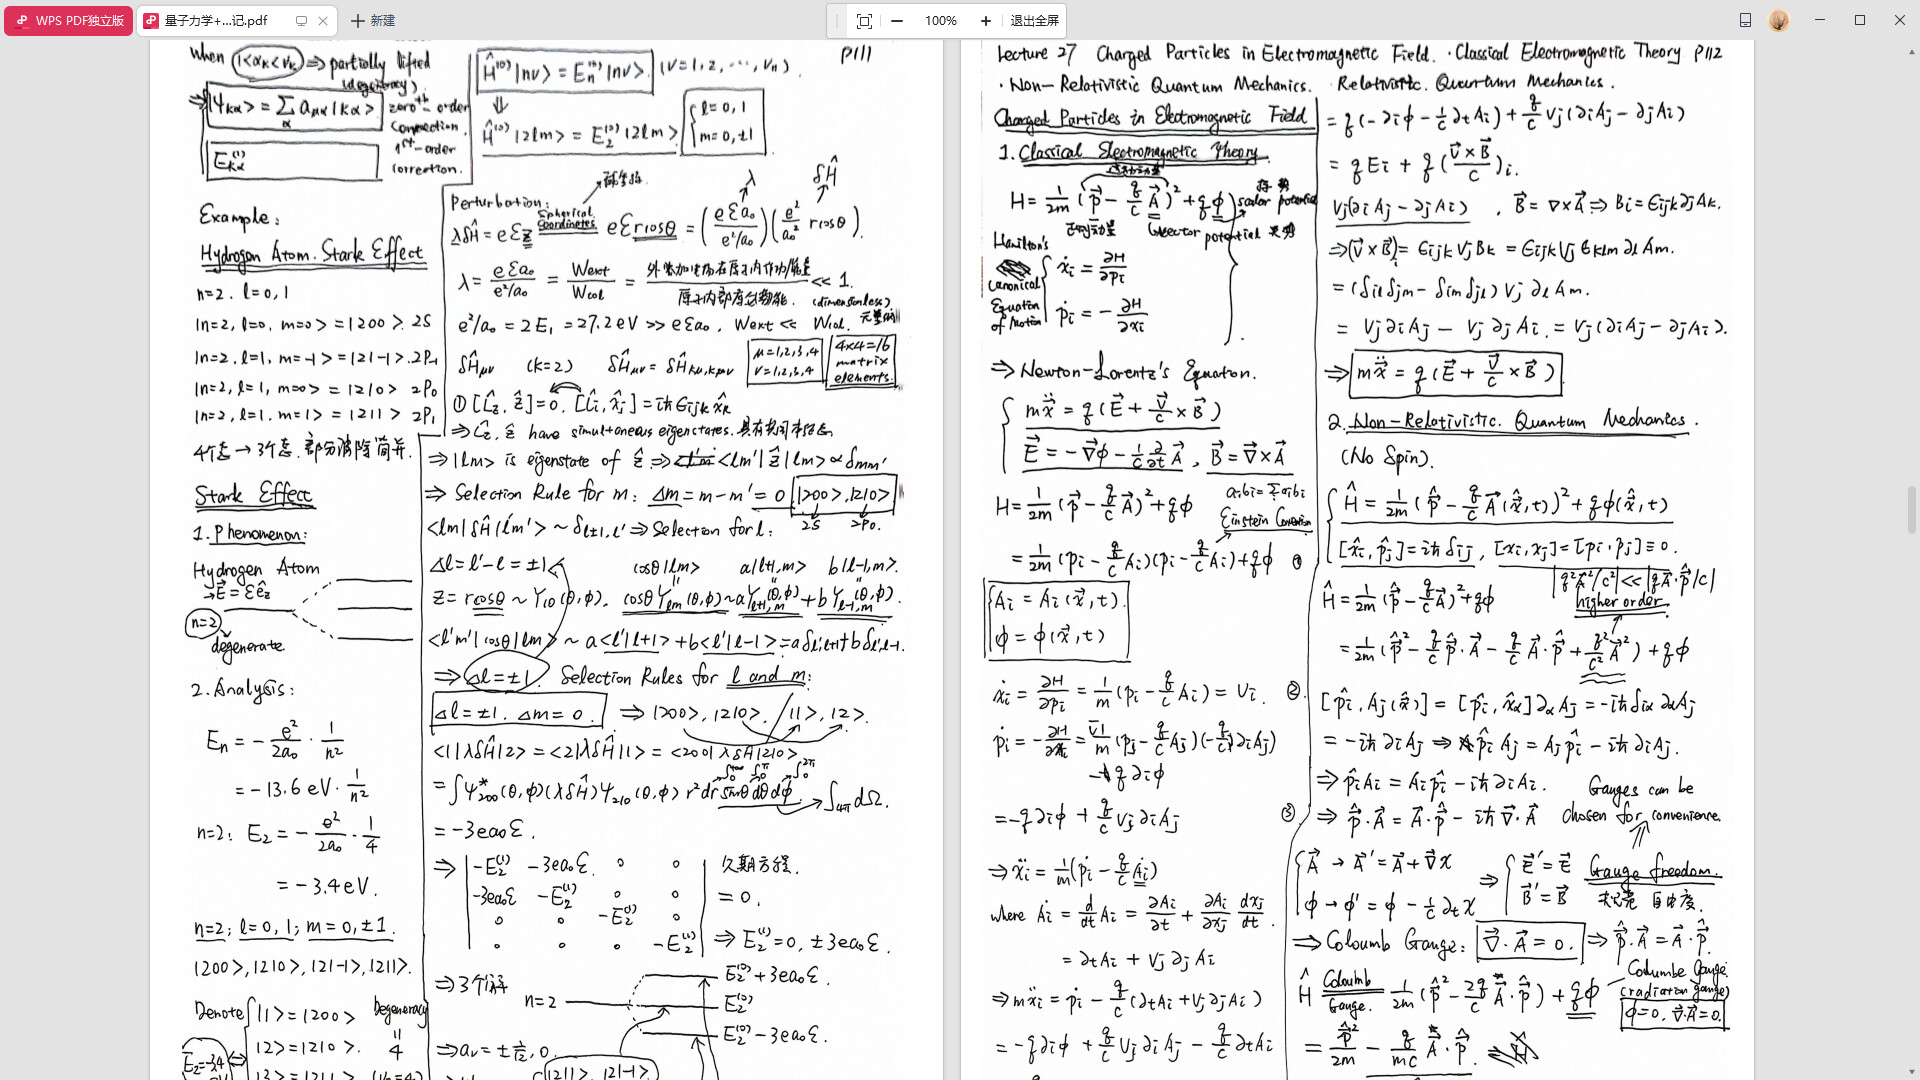 WPS PDF独立版
量子力学+...记.pdf
新建
100%
退出全屏
When 1<α_K<ν_K ⇒ partially lifted
(degeneracy).
⇒ |Ψ_Kα> = Σ_α a_μα |Kα> zeroth-order
correction.
E_Kα^(1) 1st-order
correction.
Example:
Hydrogen Atom. Stark Effect
n=2. l=0,1
|n=2, l=0, m=0> = |200>. 2S
|n=2, l=1, m=-1> = |21-1>. 2P-1
|n=2, l=1, m=0> = |210> 2P0
|n=2, l=1. m=1> = |211> 2P1
4个态→3个态. 部分消除简并.
Stark Effect
1. Phenomenon:
Hydrogen Atom
E⃗ = εê_z
n=2
degenerate
2. Analysis:
E_n = - e²/2a₀ · 1/n²
= -13.6 eV · 1/n²
n=2: E₂ = - e²/2a₀ · 1/4
= -3.4 eV.
n=2; l=0,1; m=0,±1.
|200>, |210>, |21-1>, |211>.
Denote |1> = |200> Degeneracy
|2> = |210>. 4
|3> = |211>
P111
Ĥ^(0)|nν> = E_n^(0)|nν>. (ν=1,2,···,ν_n).
⇓
Ĥ^(0)|2lm> = E₂^(0)|2lm> { l=0,1
m=0,±1
Perturbation:
λ δĤ
λδĤ = eεz Spherical Coordinates eεrcosθ = (eεa₀ / e²/a₀)(e²/a₀² rcosθ).
λ = eεa₀ / e²/a₀ = Wext/Wcol = << 1.
(dimensionless)
e²/a₀ = 2E₁ = 27.2eV >> eεa₀, Wext << Wcol.
δĤ_μν (K=2) δĤ_μν = δĤ_Kμ,Kν μ=1,2,3,4
ν=1,2,3,4
4×4=16
matrix
elements.
① [L̂z, ẑ]=0. [L̂i, x̂j] = iħε_ijk x̂_k
⇒ L̂z, ẑ have simultaneous eigenstates.
⇒ |lm> is eigenstate of ẑ ⇒ <lm'|ẑ|lm> ∝ δmm'
⇒ Selection Rule for m: Δm = m-m' = 0 |200>, |210>
2S 2P0.
<lm|δĤ|l'm'> ~ δ_l±1,l' ⇒ Selection for l:
Δl = l'-l = ±1 cosθ|lm> a|l+1,m> b|l-1,m>.
z = rcosθ ~ Y₁₀(θ,φ). cosθY_lm(θ,φ) ~ aY_l+1,m(θ,φ) + bY_l-1,m(θ,φ).
<l'm'|cosθ|lm> ~ a<l'|l+1> + b<l'|l-1> = aδ_l',l+1 + bδ_l',l-1.
⇒ Δl=±1. Selection Rules for l and m:
Δl=±1. Δm=0. ⇒ |200>, |210>. |1>, |2>.
<1|λδĤ|2> = <2|λδĤ|1> = <200|λδĤ|210>
= ∫Ψ*₂₀₀(θ,φ)(λδĤ)Ψ₂₁₀(θ,φ) r²dr sinθdθdφ. ∫_4π dΩ.
= -3ea₀ε.
⇒ | -E₂^(1) -3ea₀ε. 0 0 | 久期方程.
-3ea₀ε -E₂^(1) 0 0 = 0.
0 0 -E₂^(1) 0
0 0 0 -E₂^(1) ⇒ E₂^(1)=0, ±3ea₀ε.
⇒ 3个解 n=2 E₂^(0)+3ea₀ε.
E₂^(0)
E₂^(0)-3ea₀ε.
|211>, |21-1>
Lecture 27 Charged Particles in Electromagnetic Field. · Classical Electromagnetic Theory P112
· Non-Relativistic Quantum Mechanics. · Relativistic Quantum Mechanics.
Charged Particles in Electromagnetic Field
1. Classical Electromagnetic Theory.
H = 1/2m (p⃗ - q/c A⃗)² + qφ scalar potential
正则动量 vector potential 矢势
Hamilton's
Canonical
Equation
of Motion
ẋi = ∂H/∂pi
ṗi = -∂H/∂xi
⇒ Newton-Lorentz's Equation.
mẍ⃗ = q(E⃗ + v⃗/c × B⃗)
E⃗ = -∇⃗φ - 1/c ∂/∂t A⃗, B⃗ = ∇⃗×A⃗
H = 1/2m (p⃗ - q/c A⃗)² + qφ aibi = Σaibi
Einstein Convention
= 1/2m (pi - q/c Ai)(pi - q/c Ai) + qφ ①
Ai = Ai(x⃗,t).
φ = φ(x⃗,t)
ẋi = ∂H/∂pi = 1/m (pi - q/c Ai) = vi. ②
ṗi = -∂H/∂xi = -1/m (pj - q/c Aj)(-q/c ∂iAj)
- q∂iφ
= -q∂iφ + q/c vj∂iAj ③
⇒ ẍi = 1/m (ṗi - q/c Ȧi)
where Ȧi = d/dt Ai = ∂Ai/∂t + ∂Ai/∂xj dxj/dt.
= ∂tAi + vj∂jAi
⇒ mẍi = ṗi - q/c (∂tAi + vj∂jAi)
= -q∂iφ + q/c vj∂iAj - q/c ∂tAi
= q(-∂iφ - 1/c ∂tAi) + q/c vj(∂iAj - ∂jAi)
= qEi + q(v⃗×B⃗/c)i.
vj(∂iAj - ∂jAi), B⃗ = ∇×A⃗ ⇒ Bi = εijk∂jAk.
⇒ (v⃗×B⃗)i = εijk vjBk = εijk vj εklm ∂lAm.
= (δilδjm - δimδjl) vj∂lAm.
= vj∂iAj - vj∂jAi = vj(∂iAj - ∂jAi).
⇒ mẍ⃗ = q(E⃗ + v⃗/c × B⃗)
2. Non-Relativistic Quantum Mechanics.
(No Spin).
Ĥ = 1/2m (p̂⃗ - q/c A⃗(x̂⃗,t))² + qφ(x̂⃗,t)
[x̂i, p̂j] = iħδij, [xi,xj] = [pi,pj] ≡ 0.
Ĥ = 1/2m (p̂⃗ - q/c A⃗)² + qφ |q²A⃗²/c²| << |qA⃗·p̂⃗/c|
higher order.
= 1/2m (p̂⃗² - q/c p̂⃗·A⃗ - q/c A⃗·p̂⃗ + q²/c² A⃗²) + qφ
[p̂i, Aj(x̂⃗)] = [p̂i, x̂α]∂αAj = -iħδiα∂αAj
= -iħ∂iAj ⇒ p̂iAj = Ajp̂i - iħ∂iAj.
⇒ p̂iAi = Aip̂i - iħ∂iAi. Gauges can be
⇒ p̂⃗·A⃗ = A⃗·p̂⃗ - iħ∇⃗·A⃗ chosen for convenience.
A⃗ → A⃗' = A⃗ + ∇⃗χ
φ → φ' = φ - 1/c ∂tχ
⇒ E⃗' = E⃗
B⃗' = B⃗
Gauge freedom.
自由度.
⇒ Coloumb Gauge: ∇⃗·A⃗ = 0. ⇒ p̂⃗·A⃗ = A⃗·p̂⃗.
Ĥ Coloumb Gauge. 1/2m (p̂⃗² - 2q/c A⃗·p̂⃗) + qφ
Columbe Gauge
(radiation gauge)
φ=0. ∇⃗·A⃗=0.
= p̂⃗²/2m - q/mc A⃗·p̂⃗.